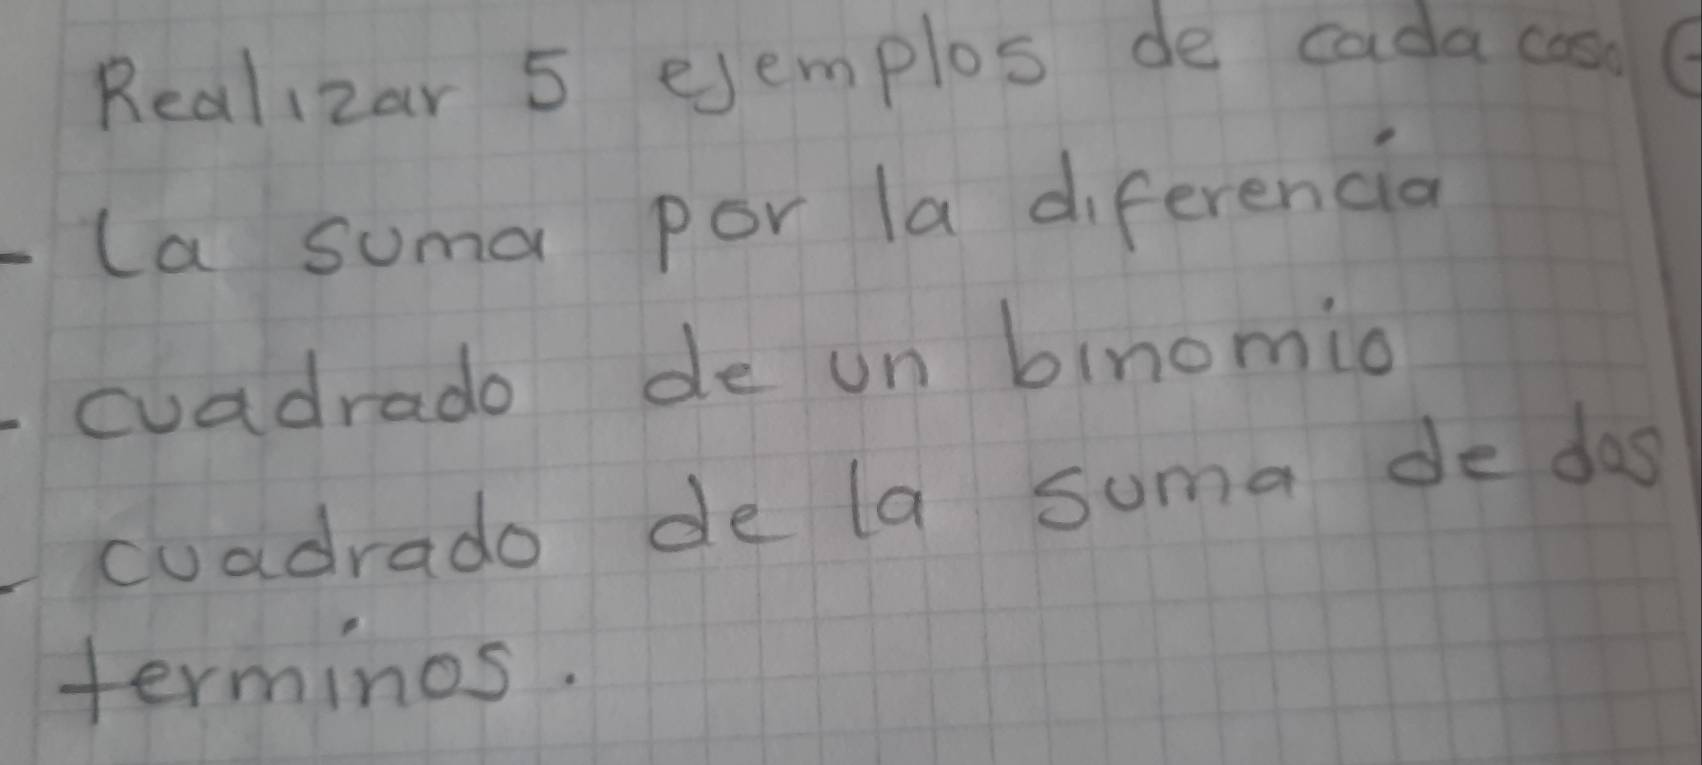 Realizar 5 ejemplos de cada caso
- La suma por la diferencia
- cuadrado de un binomio
- cuadrado de la suma de dos
terminos.